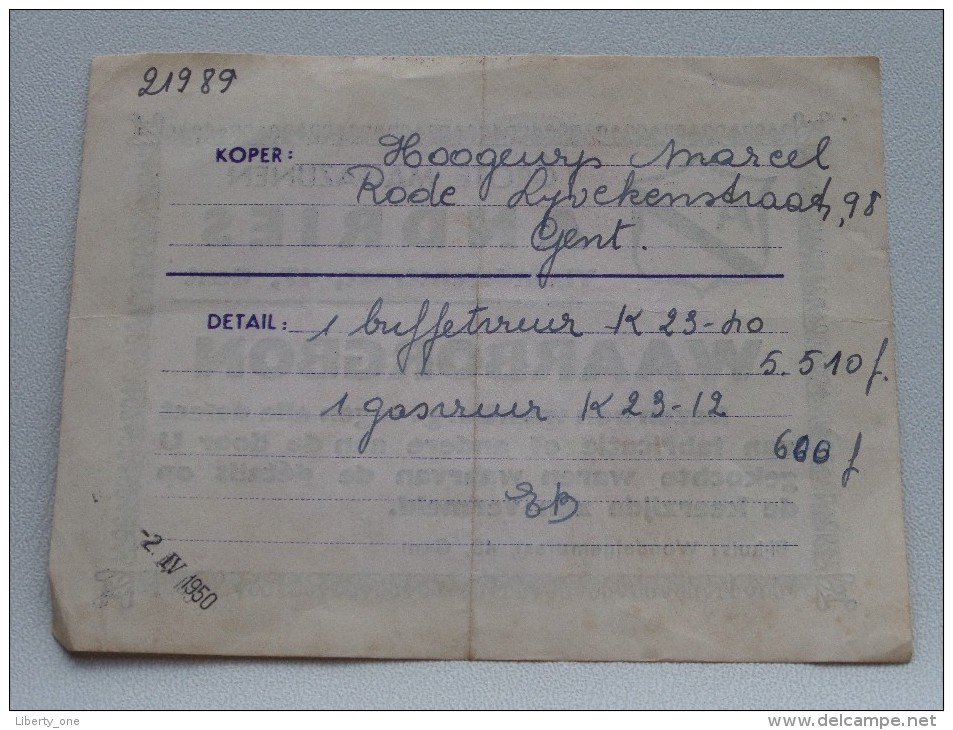 21989
KOPER: Hoogeurs Marcel
Rode Lyvekenstraat, 98
Gent.
DETAIL: 1 buffetvuur K 23-40
5.510 f.
1 gasvuur K 23-12
600 f
EB
-2. IV 1950
Liberty_one
www.delcampe.net